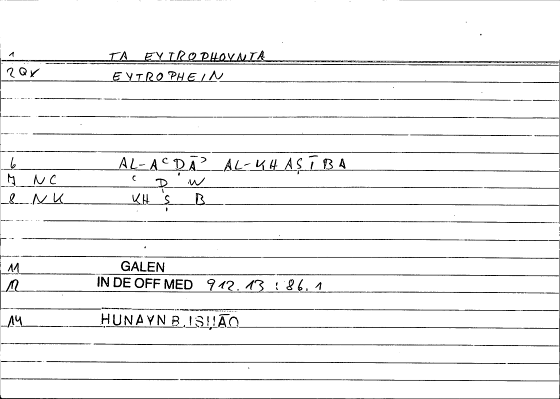 1 TA EYTROPHOYNTA
2 QV EYTROPHEIN
6 AL-AʿḌĀʾ AL-KHAṢĪBA
7 NC ʿ Ḍ W
8 NK KH Ṣ B
11 GALEN
12 IN DE OFF MED 912.13 : 86.1
14 ḤUNAYN B. ISḤĀQ